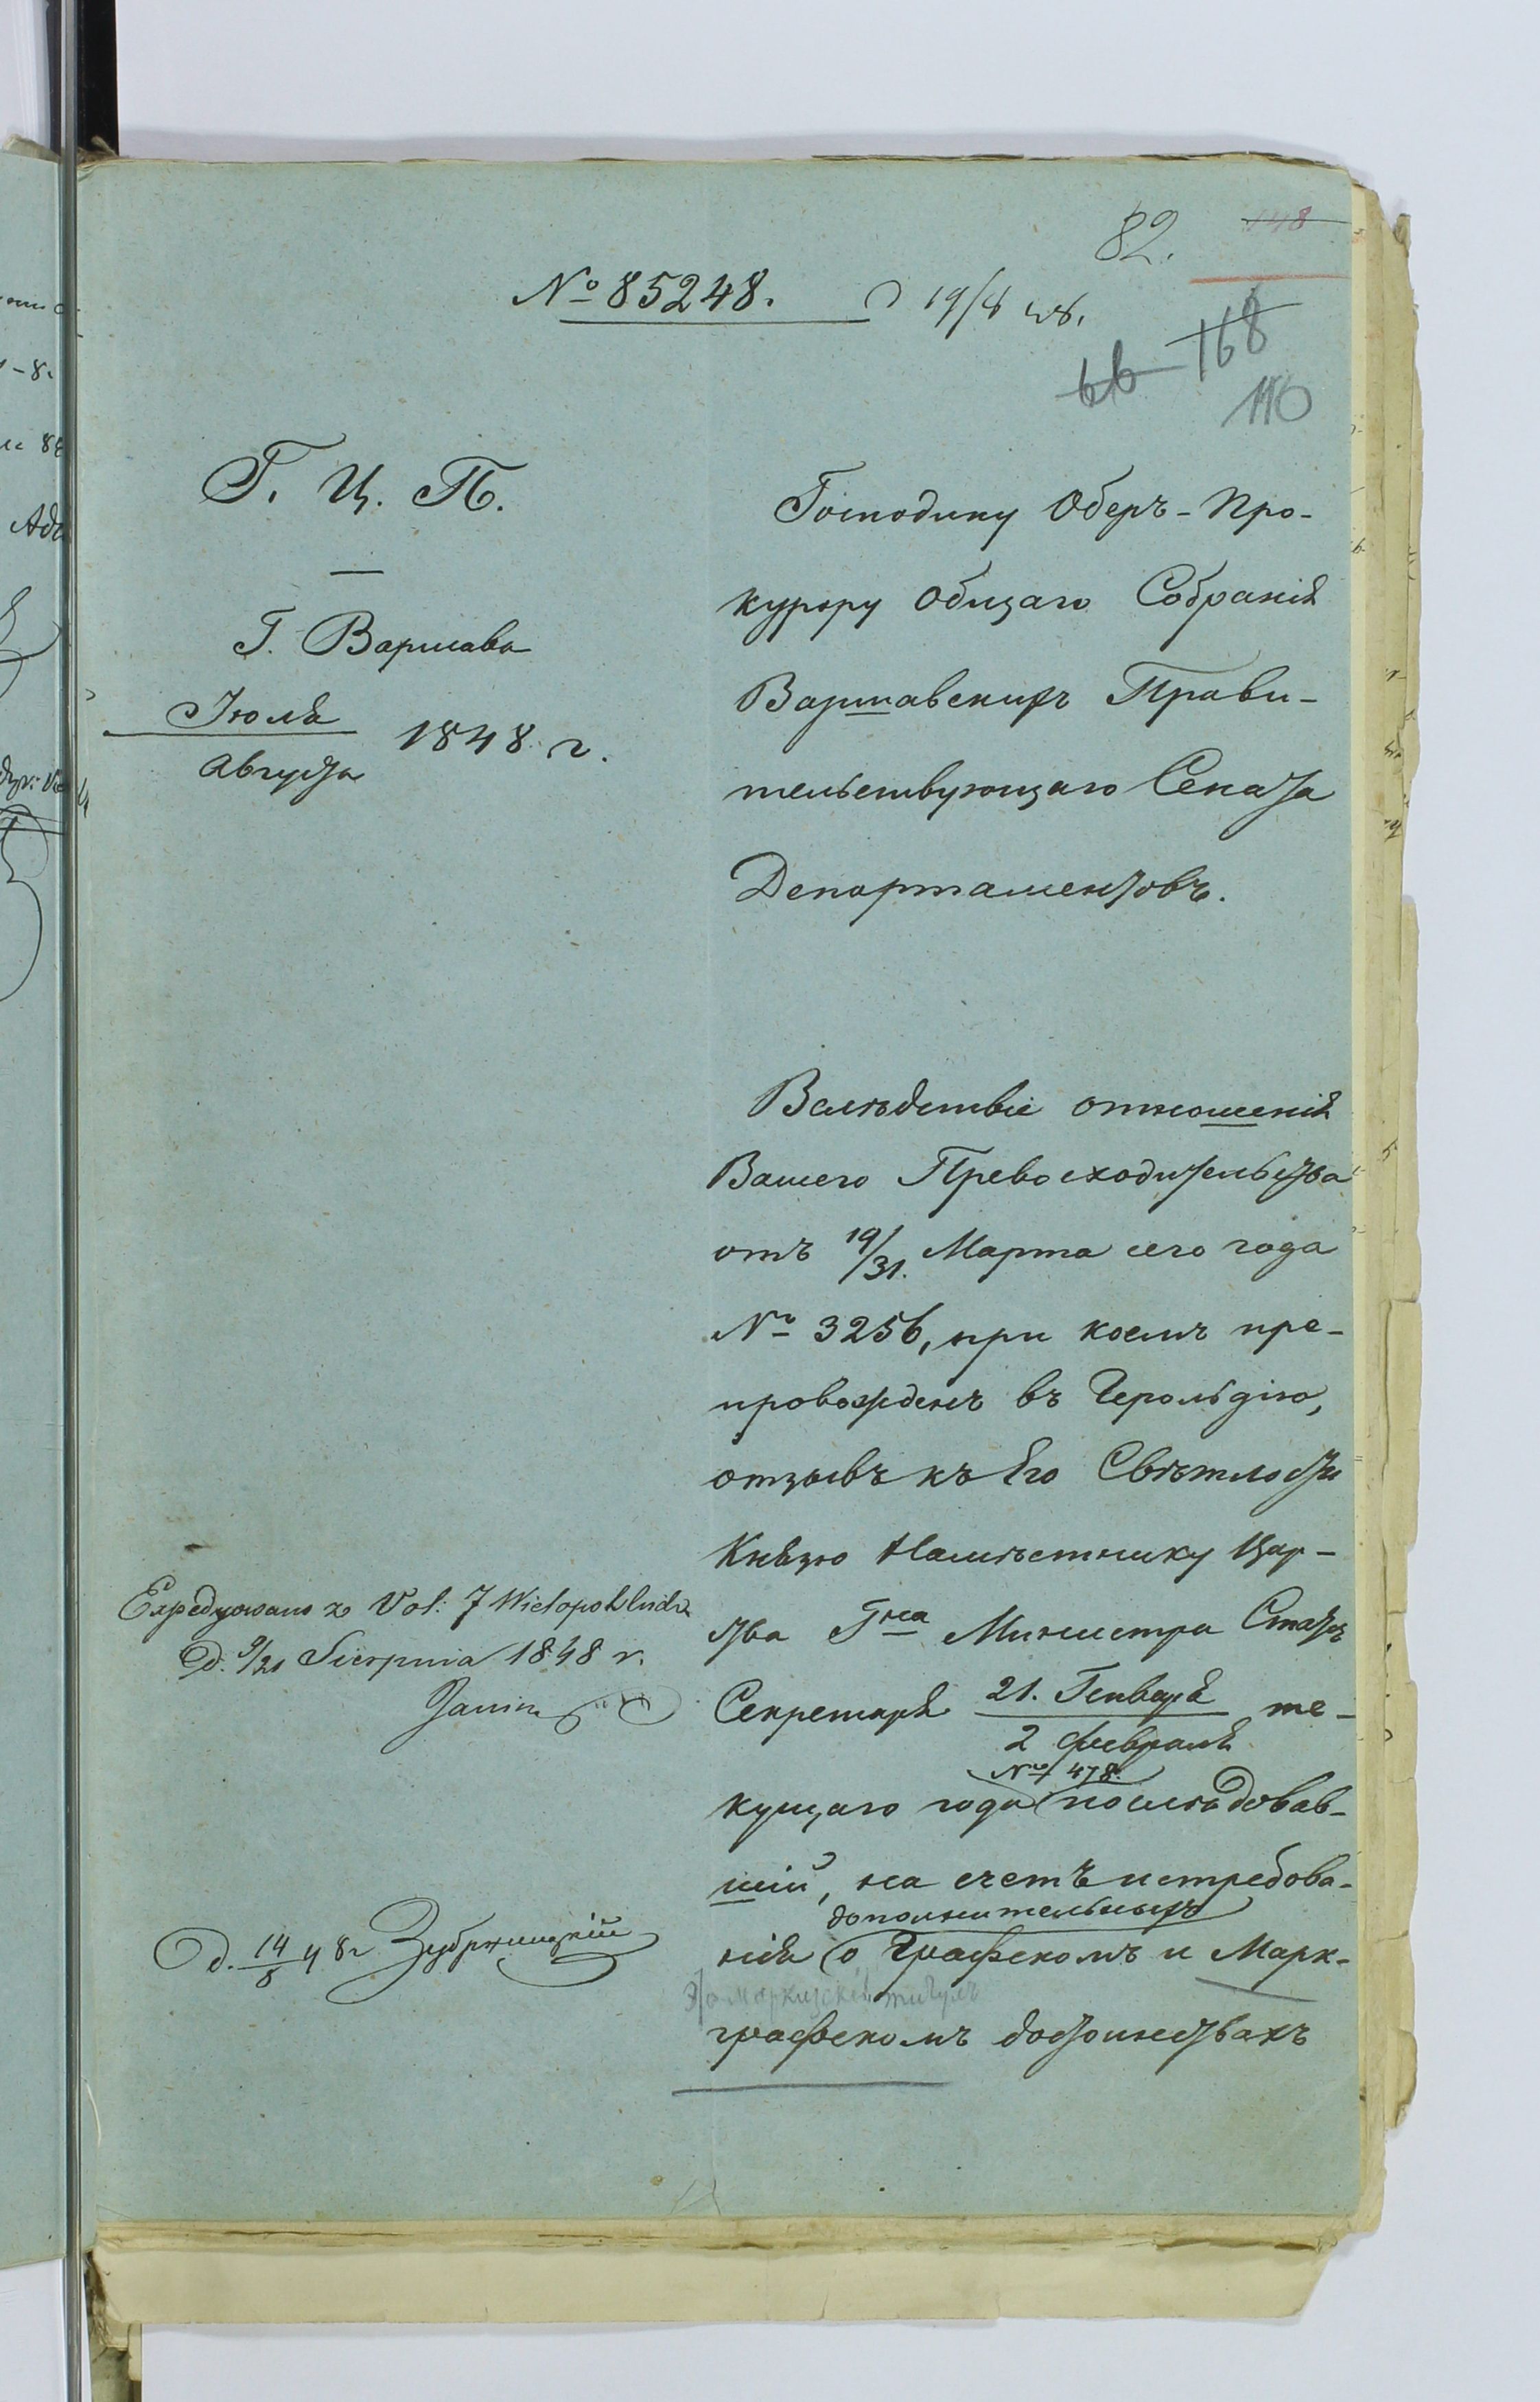 82. 148
№ 85248. 19/8 48.
66 168
110
Г. Ц. П.
Г. Варшава
Іюля
Августа 1848 г.
Господину Оберъ-Про-
курору Общаго Собранія
Варшавскихъ Прави-
тельствующаго Сената
Департаментовъ.
Вслѣдствіе отношенія
Вашего Превосходительства
отъ 19/31. Марта сего года
№ 3256, при коемъ пре-
провожденъ въ Герольдію,
отзывъ къ Его Свѣтлости
Князю Намѣстнику Цар-
ства Гна Министра Статсъ
Секретаря 21. Генваря
2 Февраля те-
№ 478.
кущаго года послѣдовав-
шій, на счетъ истребова-
дополнительныхъ
нія о Графскомъ и Марк-
о Маркизскомъ титулѣ
графскомъ достоинствахъ
Expedyowano z Vol: 7
D. 9/21 Sierpnia 1848 r.
D. 14/8 48 г Зубржицкій